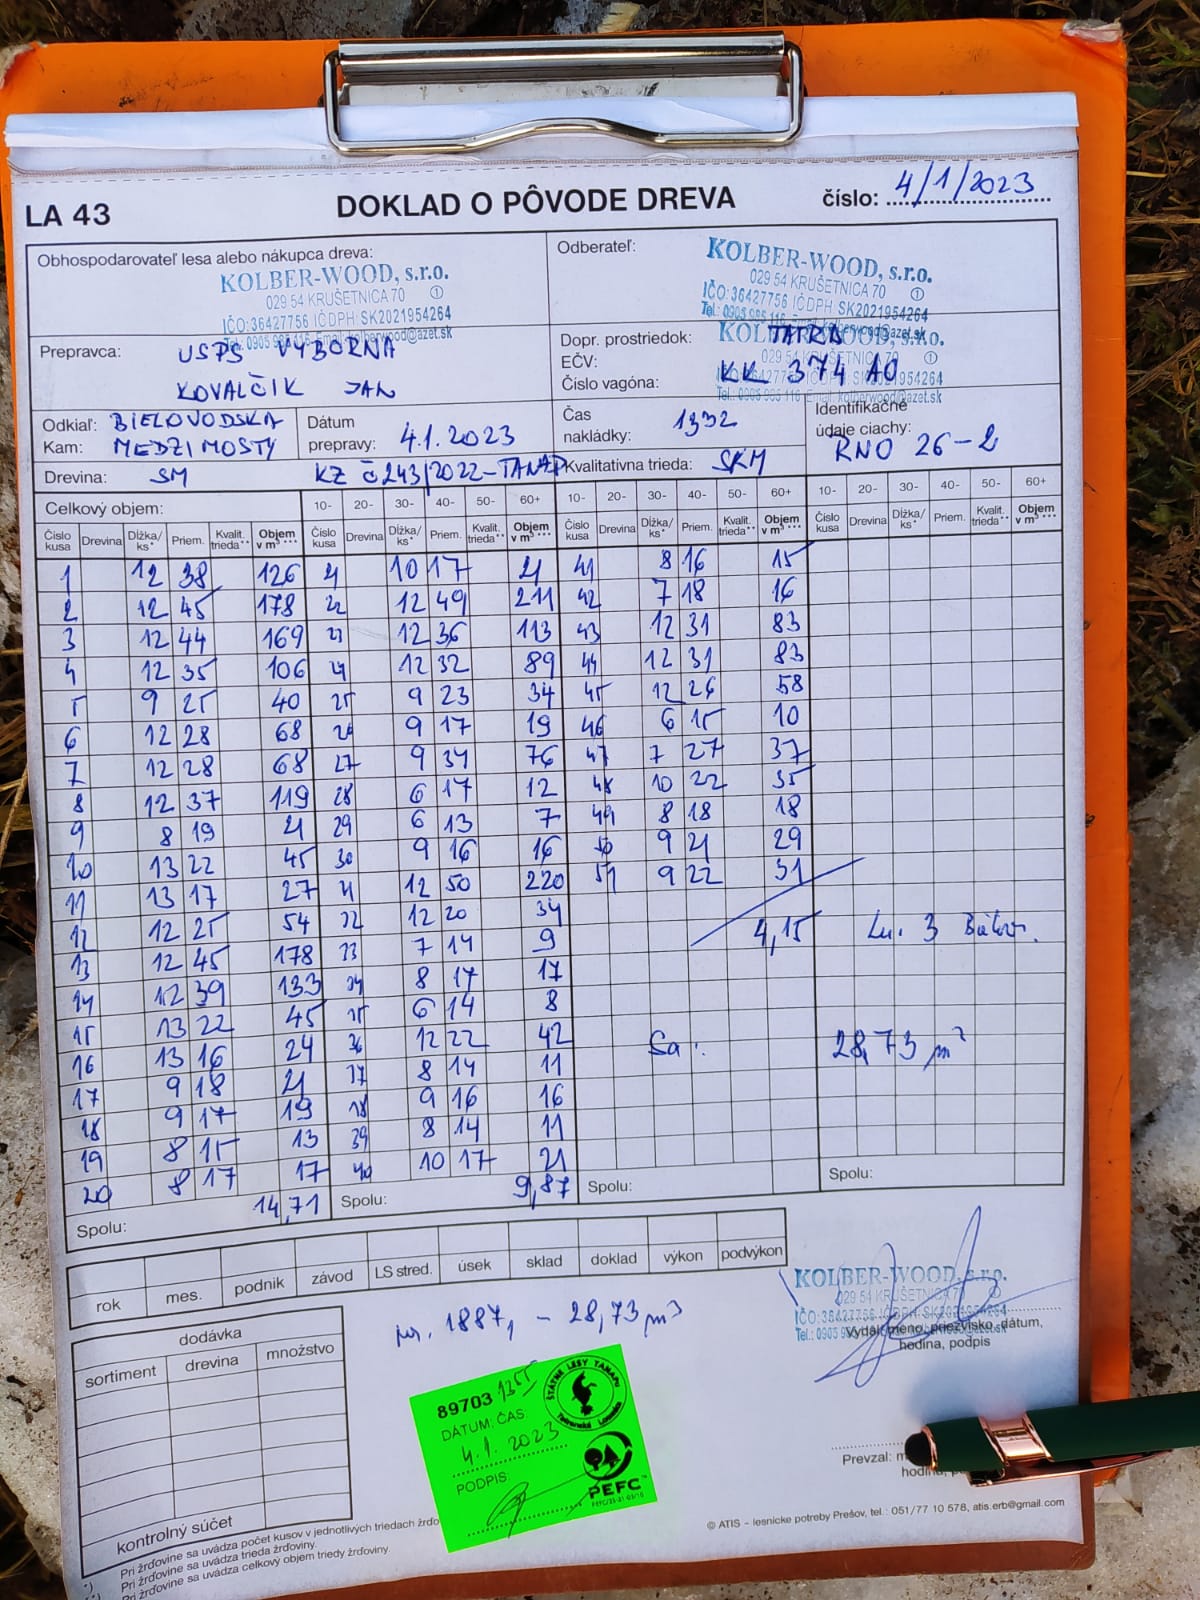 LA 43
DOKLAD O PÔVODE DREVA
číslo: 4/1/2023
Obhospodarovateľ lesa alebo nákupca dreva:
KOLBER-WOOD, s.r.o.
029 54 KRUŠETNICA 70 ①
IČO:36427756 IČDPH:SK2021954264
Tel.: 0905 985 116, Email: kolberwood@azet.sk
Odberateľ:
KOLBER-WOOD, s.r.o.
029 54 KRUŠETNICA 70 ①
IČO:36427756 IČDPH:SK2021954264
Tel.: 0905 985 116, Email: kolberwood@azet.sk
Prepravca: USPS VÝBORNA
KOVALČIK JAN
Dopr. prostriedok: TATRA
EČV: KK 374 AO
Číslo vagóna:
KOLBER-WOOD, s.r.o.
029 54 KRUŠETNICA 70 ①
Tel.: 0905 985 116 Email: kolberwood@azet.sk
Odkiaľ: BIELOVODSKA
Kam: MEDZI MOSTY
Dátum prepravy: 4.1.2023
Čas nakládky: 1332
Identifikačné údaje ciachy: RNO 26-2
Drevina: SM
KZ č 243/2022-TANAP
Kvalitatívna trieda: SKM
Celkový objem:
10- 20- 30- 40- 50- 60+ 10- 20- 30- 40- 50- 60+ 10- 20- 30- 40- 50- 60+
Číslo kusa Drevina Dĺžka/ks* Priem. Kvalit. trieda** Objem v m³ *** Číslo kusa Drevina Dĺžka/ks* Priem. Kvalit. trieda** Objem v m³ *** Číslo kusa Drevina Dĺžka/ks* Priem. Kvalit. trieda** Objem v m³ *** Číslo kusa Drevina Dĺžka/ks* Priem. Kvalit. trieda** Objem v m³ ***
1 12 38 126 21 10 17 21 41 8 16 15
2 12 45 178 22 12 49 211 42 7 18 16
3 12 44 169 23 12 36 113 43 12 31 83
4 12 35 106 24 12 32 89 44 12 31 83
5 9 25 40 25 9 23 34 45 12 26 58
6 12 28 68 26 9 17 19 46 6 15 10
7 12 28 68 27 9 34 76 47 7 27 37
8 12 37 119 28 6 17 12 48 10 22 35
9 8 19 21 29 6 13 7 49 8 18 18
10 13 22 45 30 9 16 16 50 9 21 29
11 13 17 27 31 12 50 220 51 9 22 31
12 12 25 54 32 12 20 34
13 12 45 178 33 7 14 9 4,15
14 12 39 133 34 8 17 17
15 13 22 45 35 6 14 8
16 13 16 24 36 12 22 42 Sa: 28,73 m³
17 9 18 21 37 8 14 11
18 9 17 19 38 9 16 16
19 8 15 13 39 8 14 11
20 8 17 17 40 10 17 21
Spolu: 14,71 Spolu: 9,87 Spolu: Spolu:
rok mes. podnik závod LS stred. úsek sklad doklad výkon podvýkon
dodávka
sortiment drevina množstvo
kontrolný súčet
1887, - 28,73 m³
89703 1355
DÁTUM, ČAS
4.1.2023
PODPIS
ŠTÁTNE LESY TANAPU
Tatranská Lomnica
PEFC™
KOLBER-WOOD, s.r.o.
029 54 KRUŠETNICA 70 ①
IČO:36427756 IČDPH:SK2021954264
Tel.: 0905
Vydal: meno, priezvisko, dátum,
hodina, podpis
Prevzal: m
© ATIS – lesnícke potreby Prešov, tel.: 051/77 10 578, atis.erb@gmail.com
*) Pri žrďovine sa uvádza počet kusov v jednotlivých triedach žrďo
Pri žrďovine sa uvádza trieda žrďoviny.
Pri žrďovine sa uvádza celkový objem triedy žrďoviny.